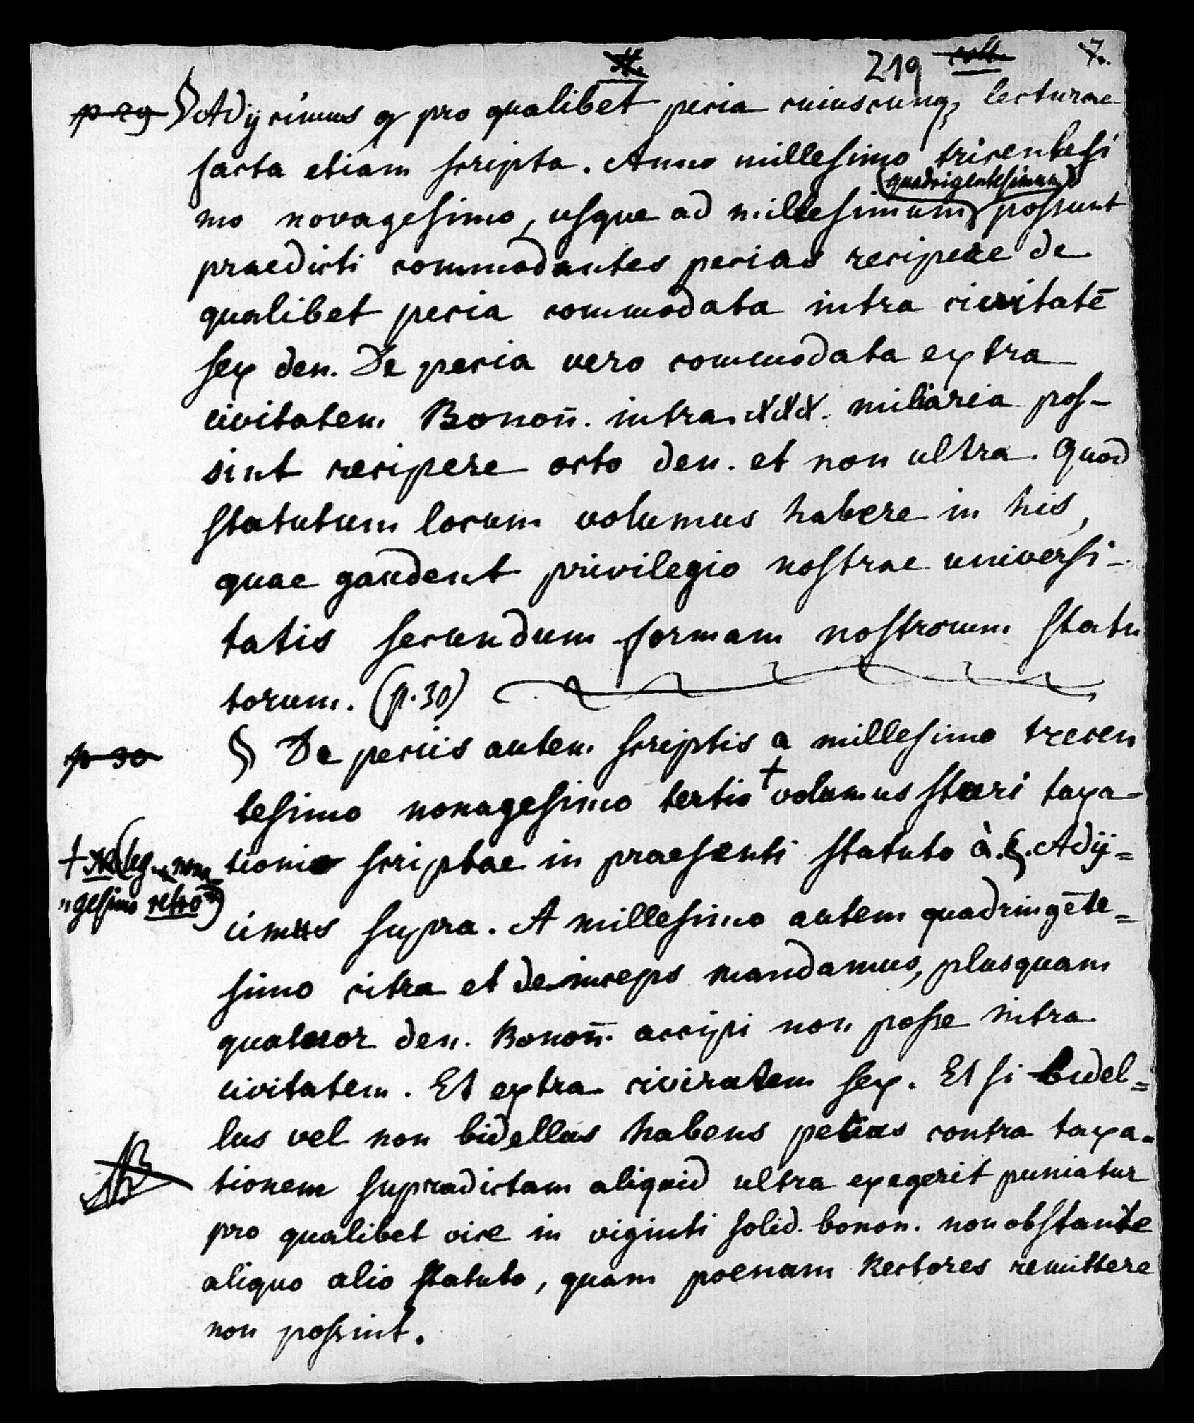 219 7.
p 29 § Adijcimus q pro qualibet pecia cuiuscunq; lecturae
facta etiam scripta. Anno millesimo tricentesi
(quadrigentesimum)
mo novagesimo, usque ad millesimum possunt
praedicti commodantes pecias recipere de
qualibet pecia commodata intra civitatē
sex den. De pecia vero commodata extra
civitatem Bonoñ. intra XXX. miliaria pos-
sint recipere octo den. et non ultra. Quod
statutum locum volumus habere in his,
quae gaudent privilegio nostrae universi-
tatis secundum formam nostrorum statu
torum. (p. 30)
p 30 § De peciis autem scriptis a millesimo trecen
tesimo nonagesimo tertio + volumus stari taxa-
tioni scriptae in praesenti statuto à. §. Adij=
+ (leg. nona
gesimo retro)
cimus supra. A millesimo autem quadringēte=
simo citra et deinceps mandamus, plusquam
quatuor den. Bonoñ. accipi non posse intra
civitatem. Et extra civitatem sex. Et si bidel=
lus vel non bidellus habens petias contra taxa-
tionem supradictam aliquid ultra exegerit puniatur
NB
pro qualibet vice in viginti solid. bonon. non obstante
aliquo alio statuto, quam poenam Rectores remittere
non possint.